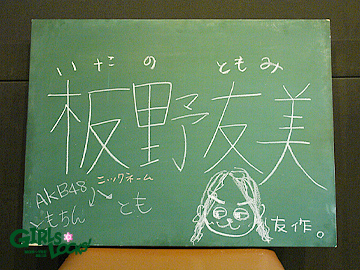 いたの ともみ
板野友美
ニックネーム
AKB48
ともちん
とも
友作。
GiRLS LOOP